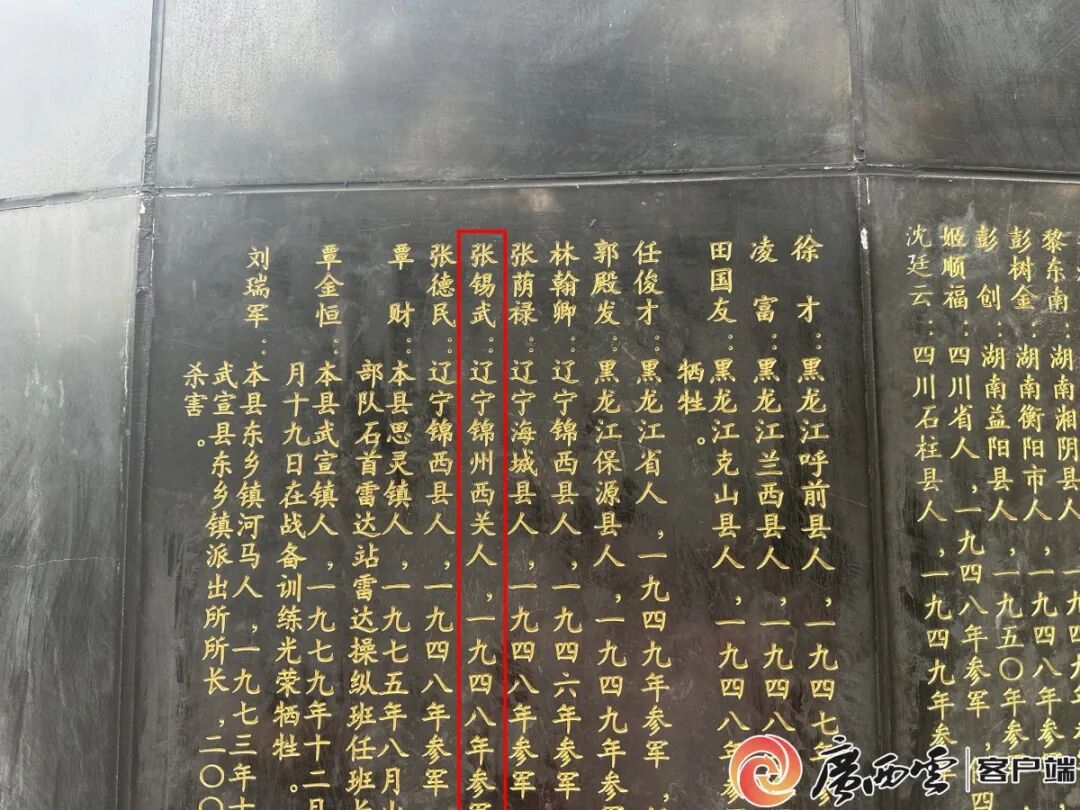 黎东南：湖南湘阴县人，一九四八年参
彭树金：湖南衡阳市人，一九四八年参军
彭　创：湖南益阳县人，一九五〇年参军
姬顺福：四川省人，一九四八年参军，
沈廷云：四川石柱县人，一九四九年参
徐　才：黑龙江呼前县人，一九四七年
凌　富：黑龙江兰西县人，一九四八
田国友：黑龙江克山县人，一九四八年参
牺牲。
任俊才：黑龙江省人，一九四九年参军，
郭殿发：黑龙江保源县人，一九四九年参
林翰卿：辽宁锦西县人，一九四六年参军
张荫禄：辽宁海城县人，一九四八年参军
张锡武：辽宁锦州西关人，一九四八年参军
张德民：辽宁锦西县人，一九四八年参军
覃　财：本县思灵镇人，一九七五年八月
部队石首雷达站雷达操纵班任班长
覃金恒：本县武宣镇人，一九七九年十二月
月十九日在战备训练光荣牺牲。
刘瑞军：本县东乡镇河马人，一九七三年十
武宣县东乡镇派出所所长，二〇〇
杀害。
广西云 客户端